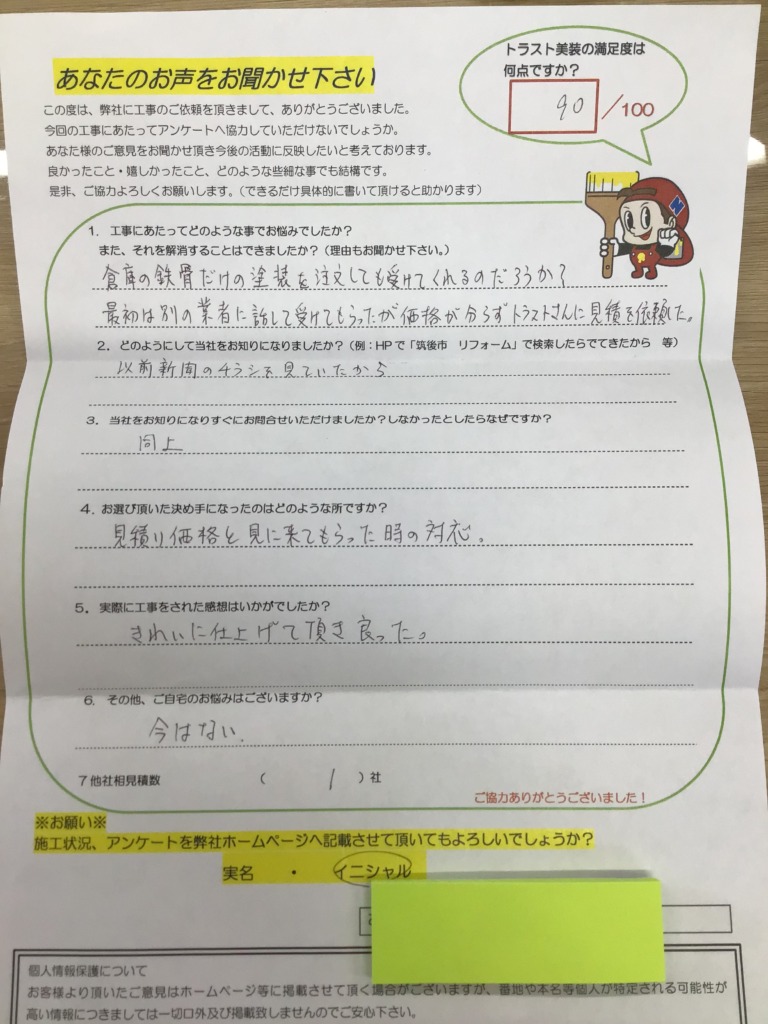 あなたのお声をお聞かせ下さい
トラスト美装の満足度は
何点ですか？
90／100
この度は、弊社に工事のご依頼を頂きまして、ありがとうございました。
今回の工事にあたってアンケートへ協力していただけないでしょうか。
あなた様のご意見をお聞かせ頂き今後の活動に反映したいと考えております。
良かったこと・嬉しかったこと、どのような些細な事でも結構です。
是非、ご協力よろしくお願いします。（できるだけ具体的に書いて頂けると助かります）
N
1．工事にあたってどのような事でお悩みでしたか？
また、それを解消することはできましたか？（理由もお聞かせ下さい。）
倉庫の鉄骨だけの塗装を注文しても受けてくれるのだろうか？
最初は別の業者に話して受けてもらったが価格が分らずトラストさんに見積を依頼した。
2．どのようにして当社をお知りになりましたか？（例：HPで「筑後市　リフォーム」で検索したらでてきたから　等）
以前新聞のチラシを見ていたから
3．当社をお知りになりすぐにお問合せいただけましたか？しなかったとしたらなぜですか？
同上
4．お選び頂いた決め手になったのはどのような所ですか？
見積り価格と見に来てもらった時の対応。
5．実際に工事をされた感想はいかがでしたか？
きれいに仕上げて頂き良った。
6．その他、ご自宅のお悩みはございますか？
今はない．
7 他社相見積数　（　1　）社
ご協力ありがとうございました！
※お願い※
施工状況、アンケートを弊社ホームページへ記載させて頂いてもよろしいでしょうか？
実名　・　イニシャル
個人情報保護について
お客様より頂いたご意見はホームページ等に掲載させて頂く場合がございますが、番地や本名等個人が特定される可能性が
高い情報につきましては一切口外及び掲載致しませんのでご安心下さい。